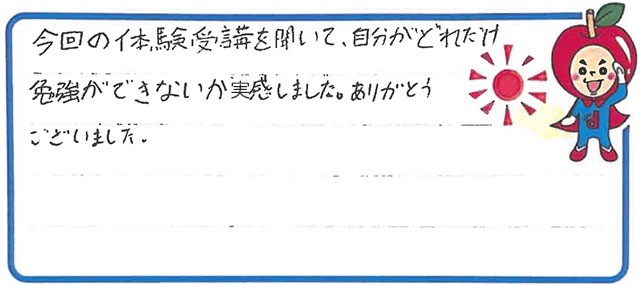 今回の体験受講を聞いて、自分がどれだけ
勉強ができないか実感しました。ありがとう
ございました。